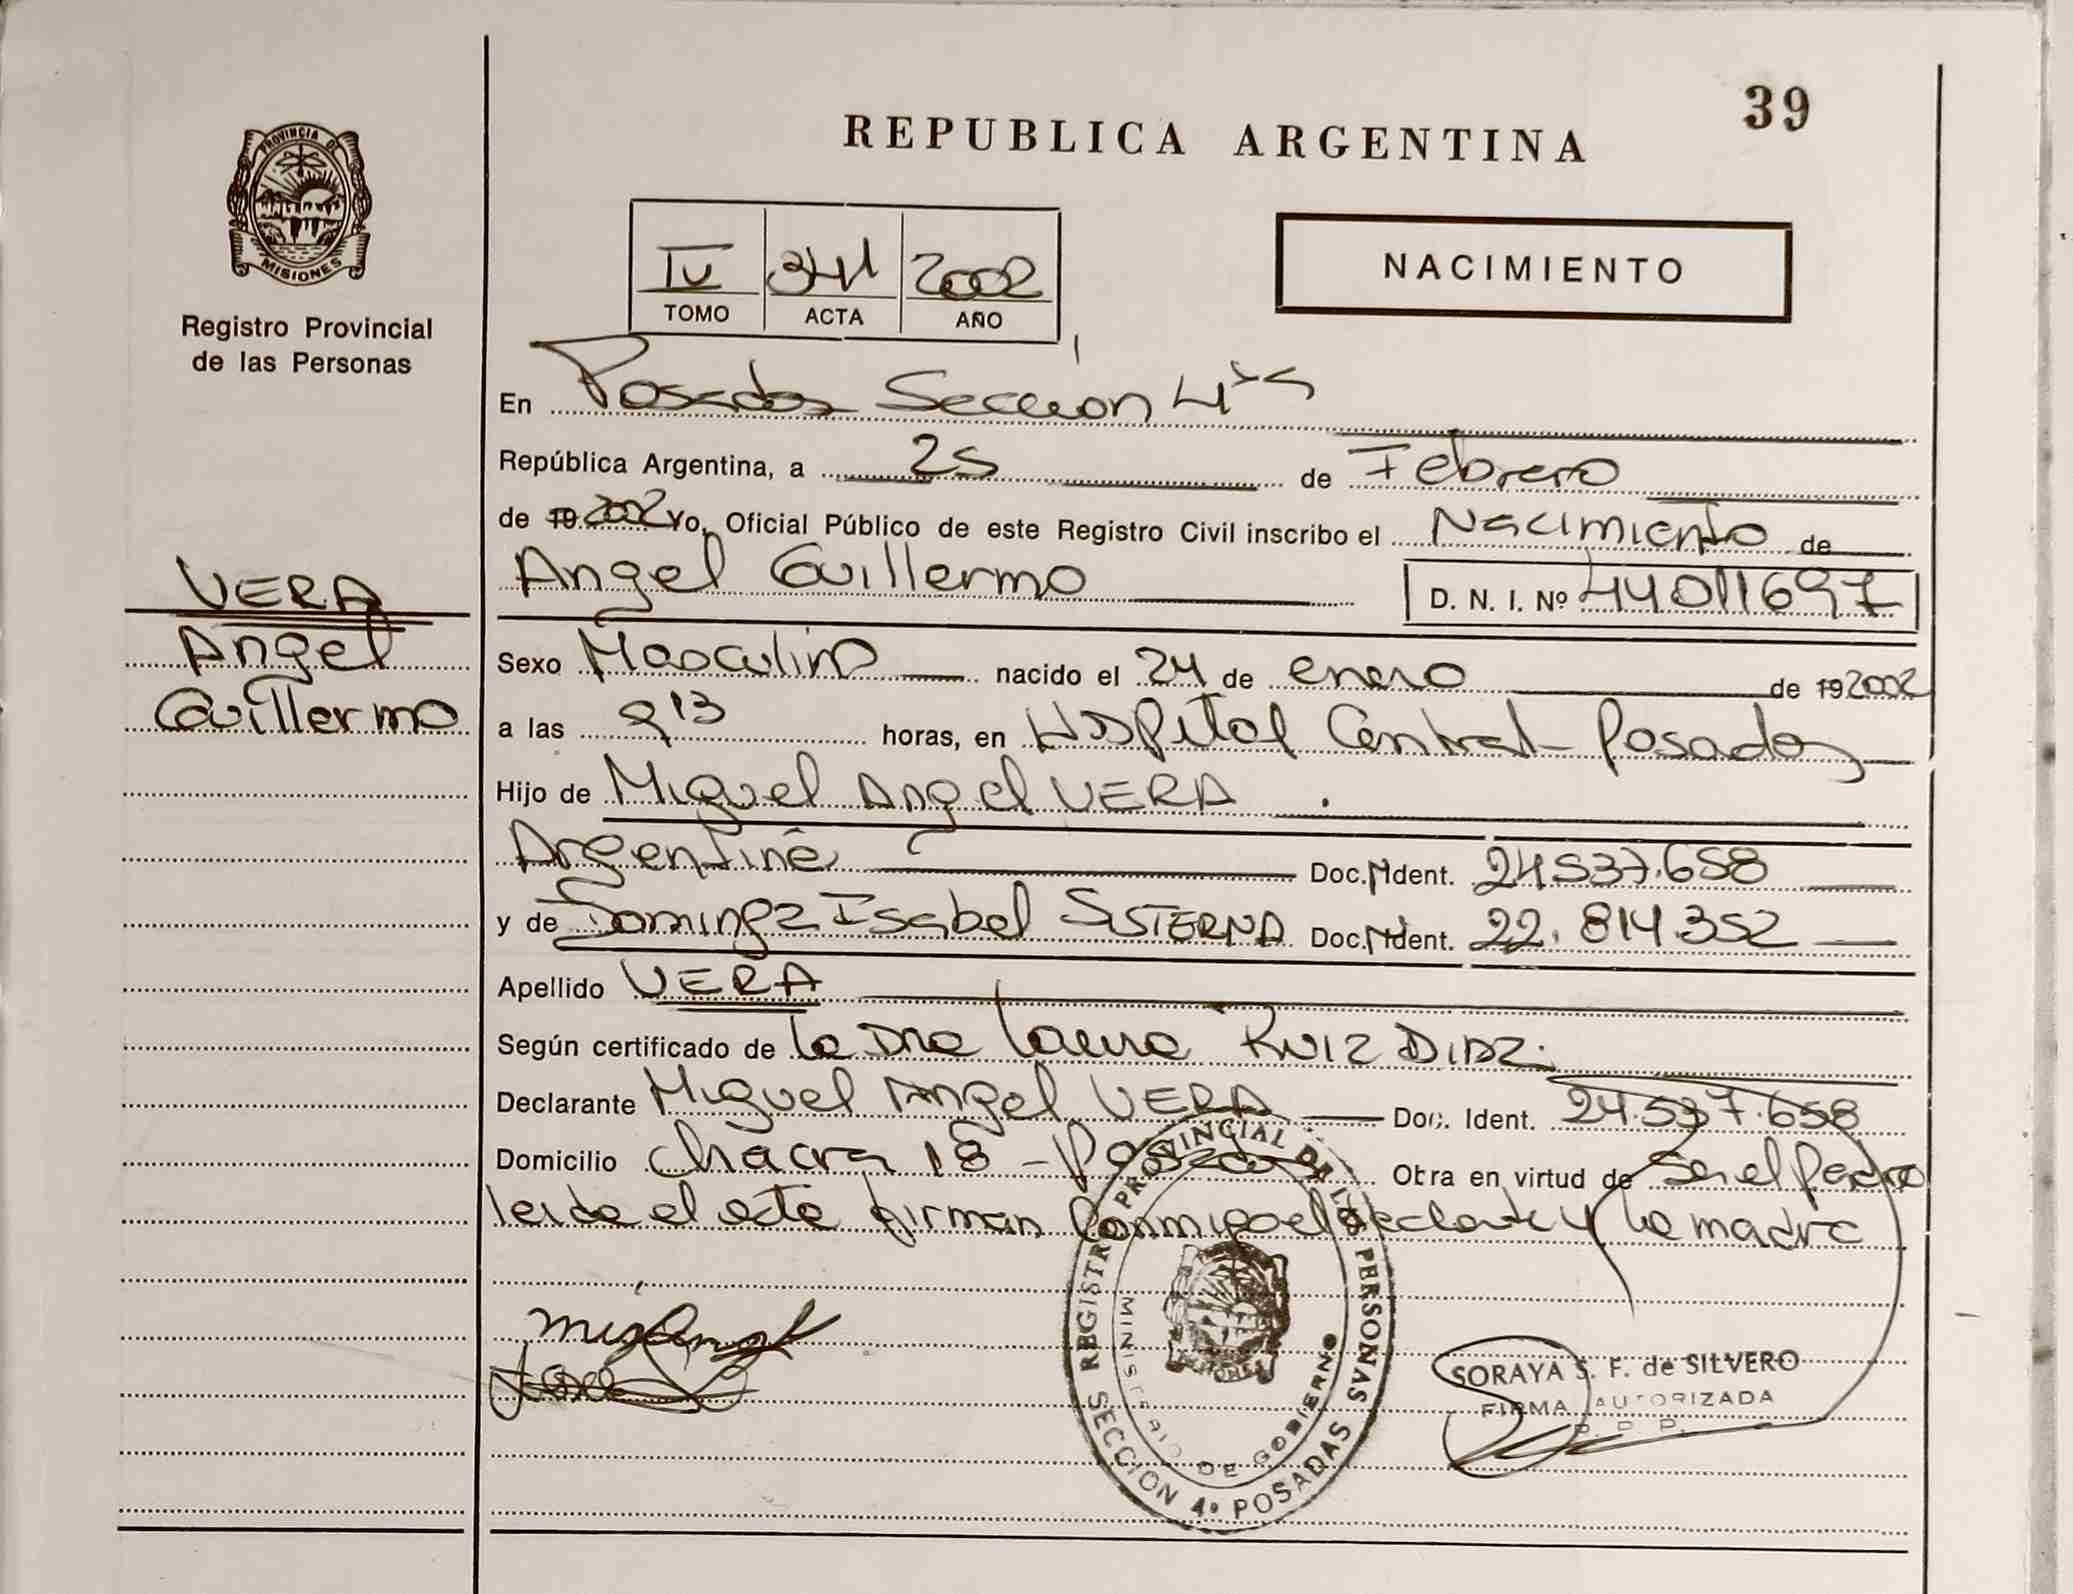 39
REPUBLICA ARGENTINA
PROVINCIA DE
MISIONES
Registro Provincial
de las Personas
IV 341 2002
TOMO ACTA AÑO
NACIMIENTO
En Posadas Sección 4ta
República Argentina, a 25 de Febrero
de 19 2002 Yo, Oficial Público de este Registro Civil inscribo el Nacimiento de
Angel Guillermo D. N. I. Nº 44011697
VERA
Angel
Guillermo
Sexo Masculino nacido el 24 de enero de 19 2002
a las 9 13 horas, en Hospital Central - Posadas
Hijo de Miguel Angel VERA.
Argentina Doc. Ident. 24537.658
y de Dominga Isabel SISTERNA Doc. Ident. 22.814.352
Apellido VERA
Según certificado de la Dra Laura RUIZ DIAZ.
Declarante Miguel Angel VERA Doc. Ident. 24.537.658
Domicilio Chacra 18 - Posadas Obra en virtud de ser el padre
leida el acta firman conmigo el declarante y la madre
REGISTRO PROVINCIAL DE LAS PERSONAS
MINISTERIO DE GOBIERNO
SECCION 4º POSADAS
MISIONES
SORAYA S. F. de SILVERO
FIRMA AUTORIZADA